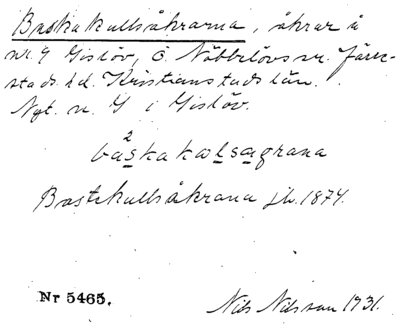 Baskakullsåkrarna, åkrar å
nr 9 Gislöv, Ö. Nöbbelövs sn. Järre-
stads hd. Kristianstads län.
Ngt. n. G i Gislöv.
2
baskakalsagrana
Bastekullsåkrana jb. 1874.
Nr 5465.
Nils Nilsson 1931.